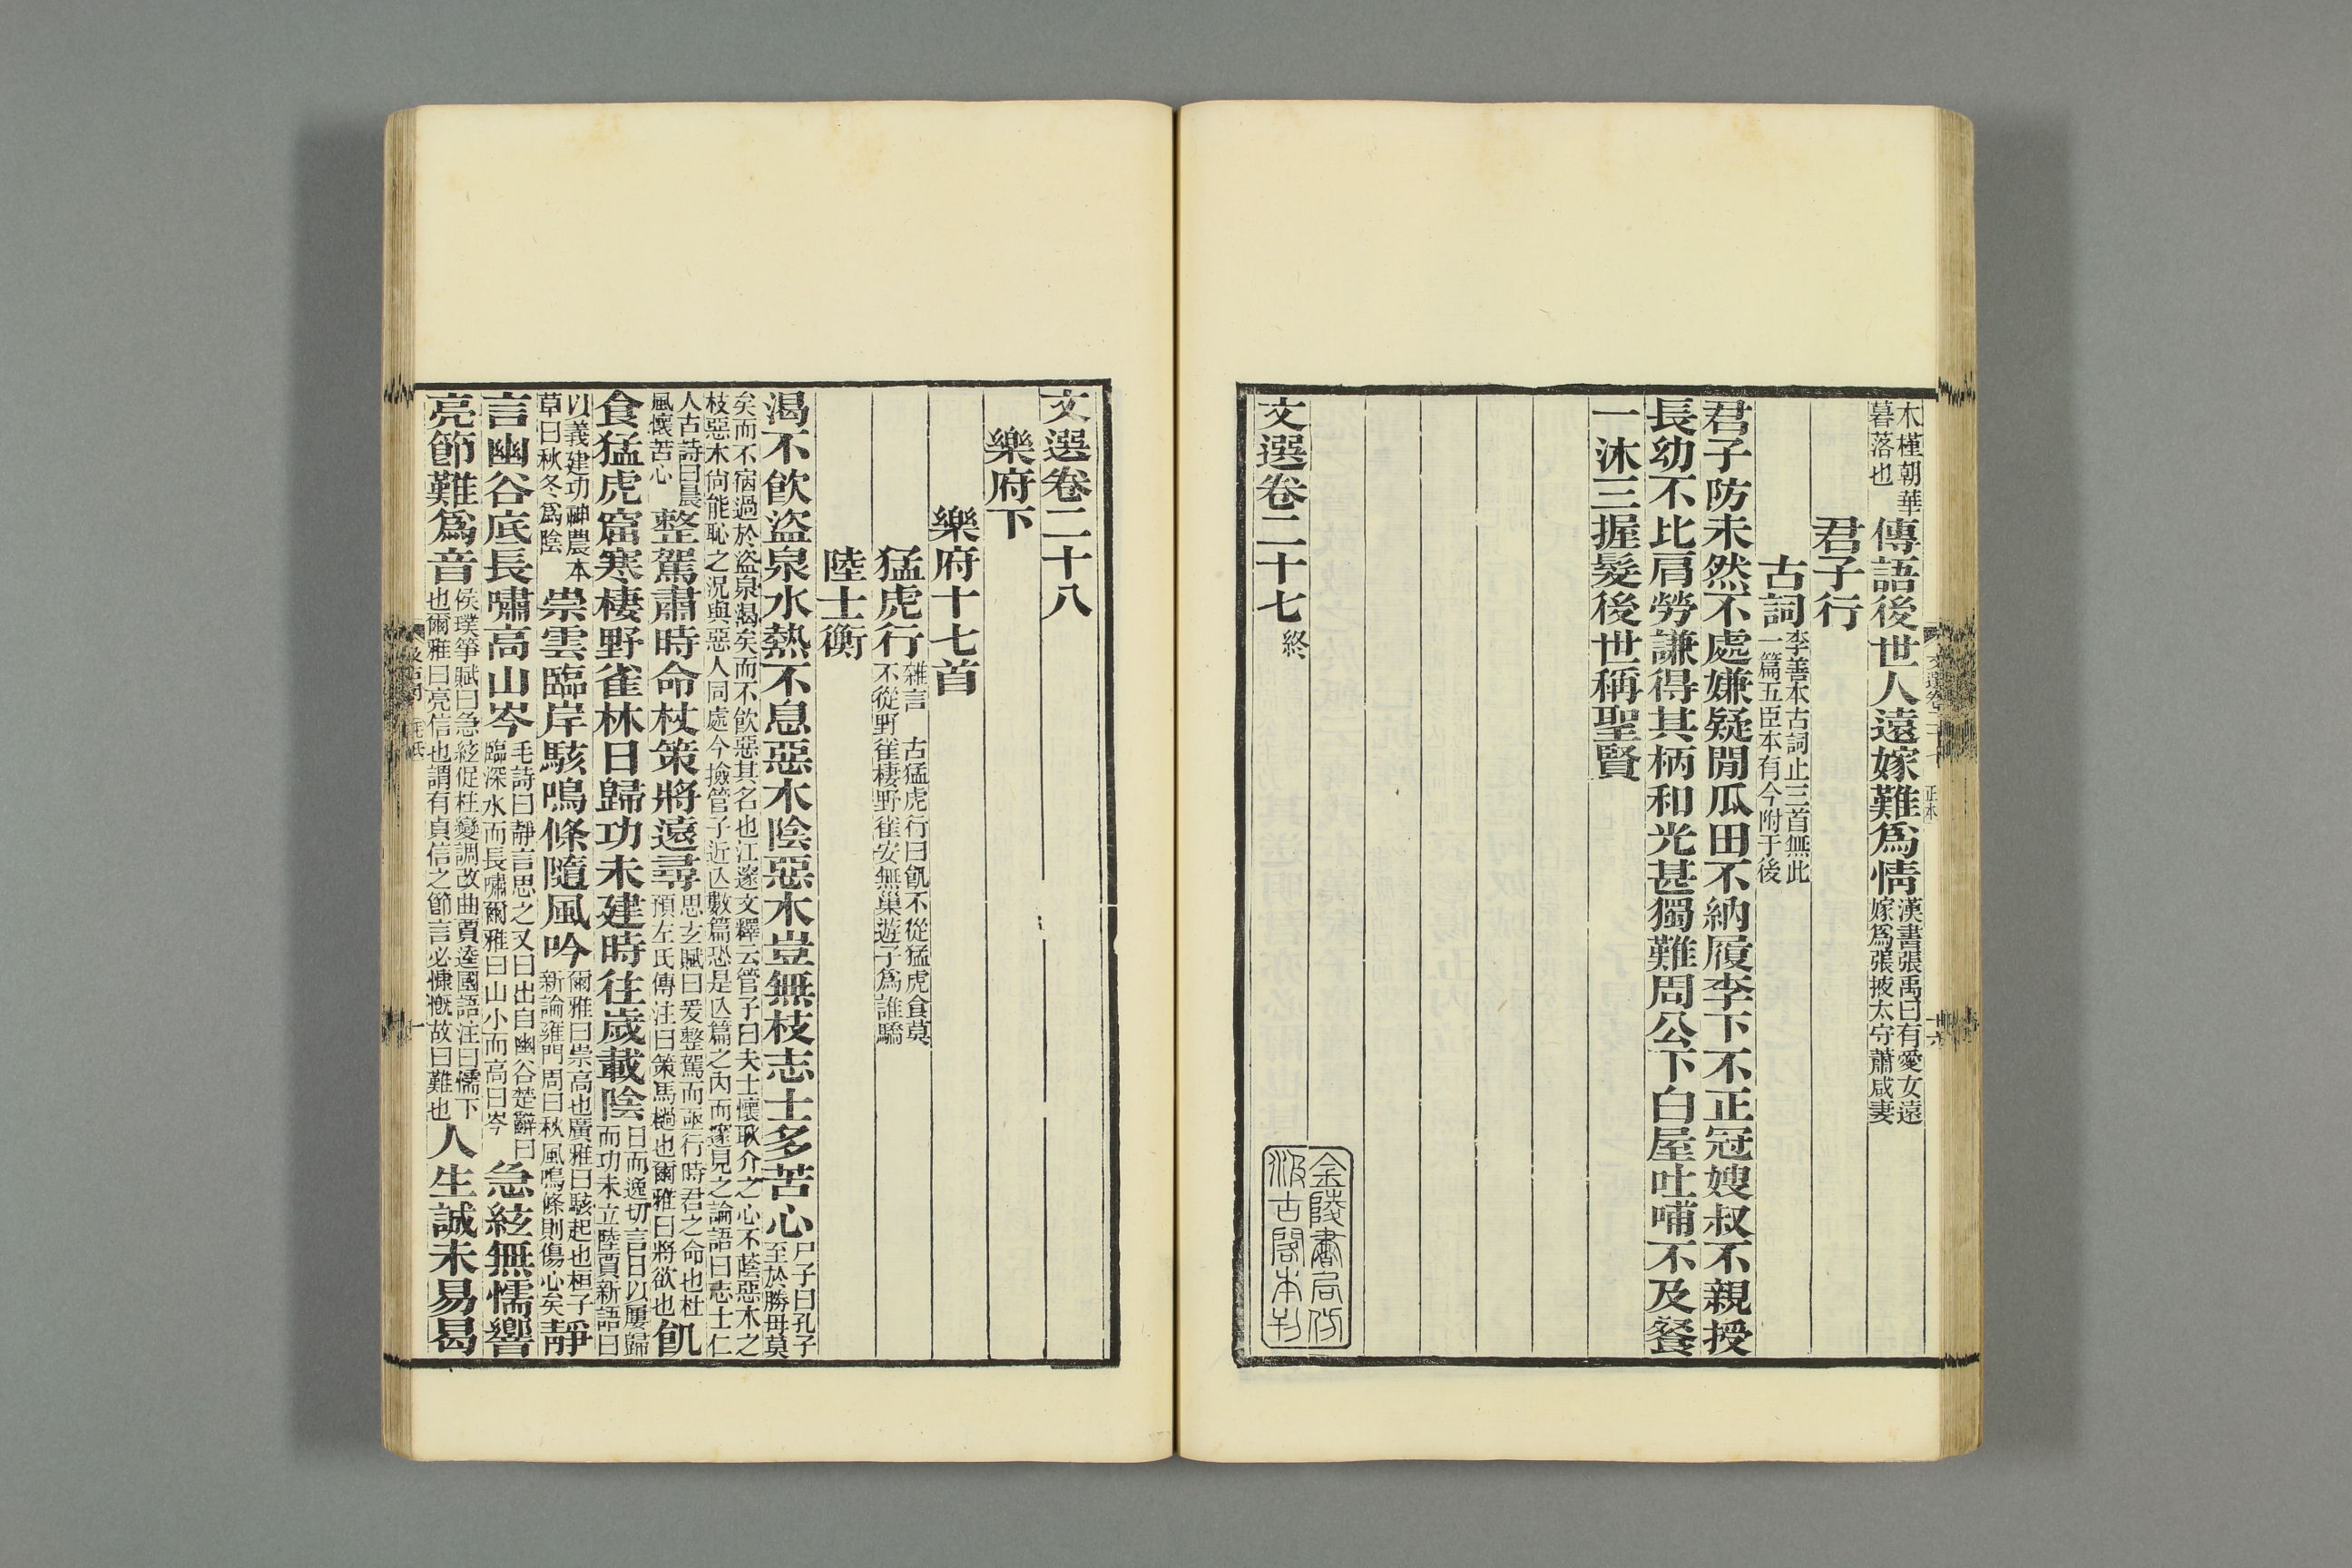 木槿朝華
暮落也
傳語後世人遠嫁難爲情
漢書張禹曰有愛女遠
嫁爲張掖太守蕭咸妻
君子行
古詞
李善本古詞止三首無此
一篇五臣本有今附于後
君子防未然不處嫌疑閒瓜田不納履李下不正冠嫂叔不親授
長幼不比肩勞謙得其柄和光甚獨難周公下白屋吐哺不及餐
一沐三握髮後世稱聖賢
文選卷二十七
終
金陵書局仿
汲古閣本刊
文選卷二十八
樂府下
樂府十七首
猛虎行
雜言 古猛虎行曰飢不從猛虎食莫
不從野雀棲野雀安無巢遊子爲誰驕
陸士衡
渴不飲盜泉水熱不息惡木陰惡木豈無枝志士多苦心
尸子曰孔子
至於勝母莫
矣而不宿過於盜泉渴矣而不飲惡其名也江邃文釋云管子曰夫士懷耿介之心不蔭惡木之
枝惡木尙能恥之況與惡人同處今撿管子近亾數篇恐是亾篇之內而邃見之論語曰志士仁
人古詩曰晨
風懷苦心
整駕肅時命杖策將遠尋
思玄賦曰爰整駕而亟行時君之命也杜
預左氏傳注曰策馬檛也爾雅曰將欲也
飢
食猛虎窟寒棲野雀林日歸功未建時往歲載陰
日而逸切言日以屢歸
而功未立陸賈新語曰
以義建功神農本
草曰秋冬爲陰
崇雲臨岸駭鳴條隨風吟
爾雅曰崇高也廣雅曰駭起也桓子
新論雍門周曰秋風鳴條則傷心矣
靜
言幽谷底長嘯高山岑
毛詩曰靜言思之又曰出自幽谷楚辭曰
臨深水而長嘯爾雅曰山小而高曰岑
急絃無懦響
亮節難爲音
侯璞箏賦曰急絃促柱變調改曲賈逵國語注曰懦下
也爾雅曰亮信也謂有貞信之節言必慷慨故曰難也
人生誠未易曷